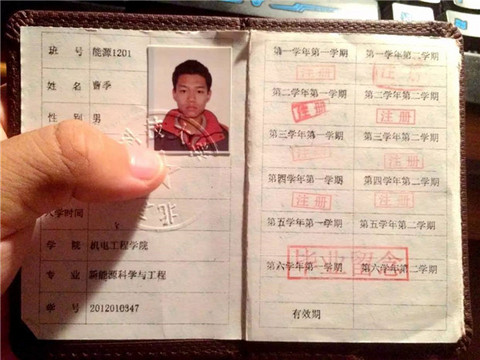 班 号 能源1201
姓 名 曹季
性 别 男
入学时间
学 院 机电工程学院
专 业 新能源科学与工程
学 号 2012010347
第一学年第一学期 第一学年第二学期
注册
第二学年第一学期 第二学年第二学期
注册 注册
第三学年第一学期 第三学年第二学期
注册
第四学年第一学期 第四学年第二学期
注册 注册
第五学年第一学期 第五学年第二学期
毕业留念
第六学年第一学期 第六学年第二学期
有效期